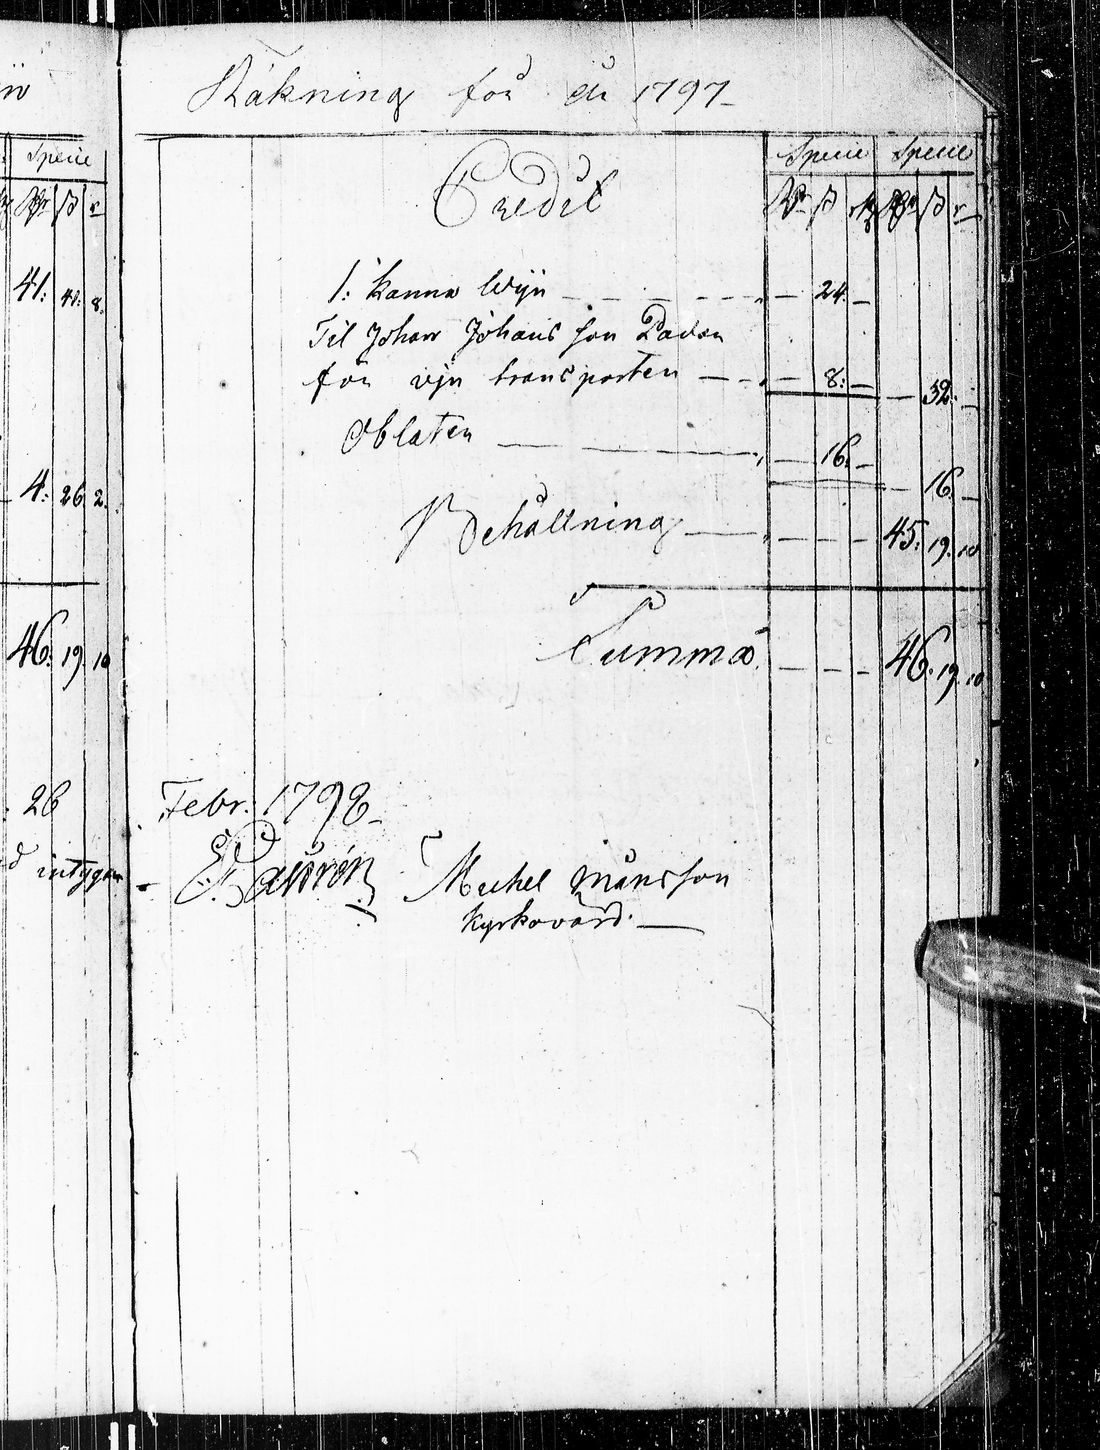 Räkning för år 1797
Specie Specie Specie
Credit
41: 41: 8.
1: Kanna Wijn 24.
Til Johan Johans son
för vijn transporten 8: 32.
Oblaten 16.
4: 26 2. 16.
Behållning 45: 19. 10
46: 19 10 Summa 46. 19. 10
26 Febr: 1798
intygar
Michel Månsson
Kyrkovärd.